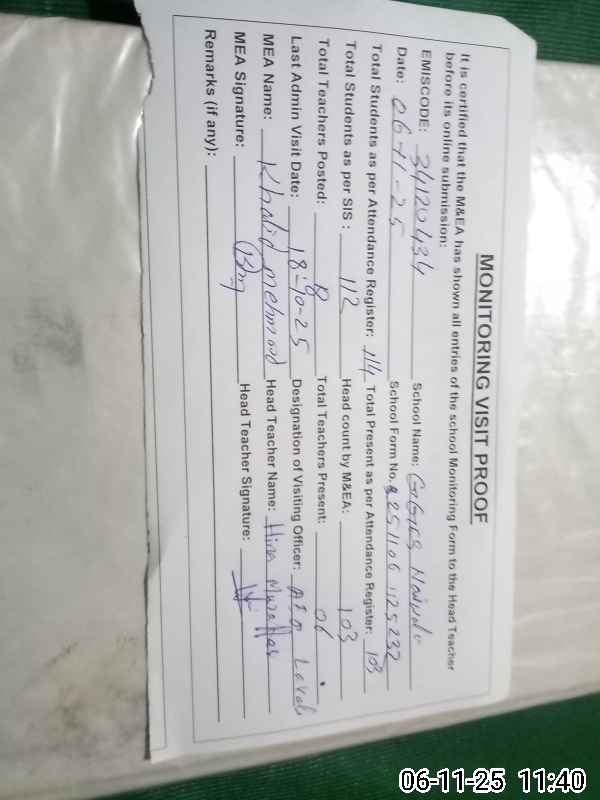 MONITORING VISIT PROOF
It is certified that the M&EA has shown all entries of the school Monitoring Form to the Head Teacher
before its online submission:
EMISCODE: 34120434 School Name: GGES
Date: 06-11-25 School Form No. 251106 1125232
Total Students as per Attendance Register: 114 Total Present as per Attendance Register: 103
Total Students as per SIS : 112 Head count by M&EA: 103
Total Teachers Posted: Total Teachers Present: 06
Last Admin Visit Date: 18-10-25 Designation of Visiting Officer:
MEA Name: Khalid mehmood Head Teacher Name: Hira
MEA Signature: Head Teacher Signature:
Remarks (if any):
06-11-25 11:40